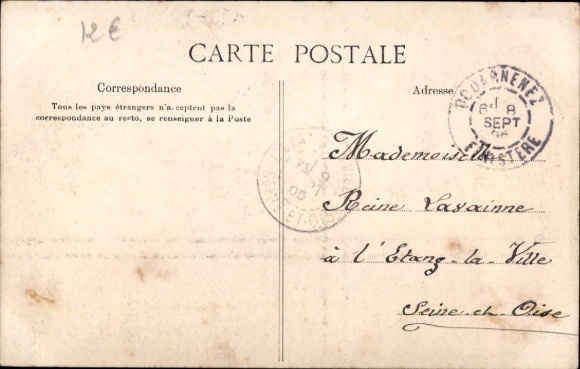 12 €
CARTE POSTALE
Correspondance
Tous les pays étrangers n'acceptent pas la
correspondance au recto, se renseigner à la Poste
Adresse
DOUARNENEZ
8
SEPT
05
FINISTÈRE
SEINE-ET-OISE
05
Mademoiselle
Reine Lavainne
à l'Etang-la-Ville
Seine et Oise